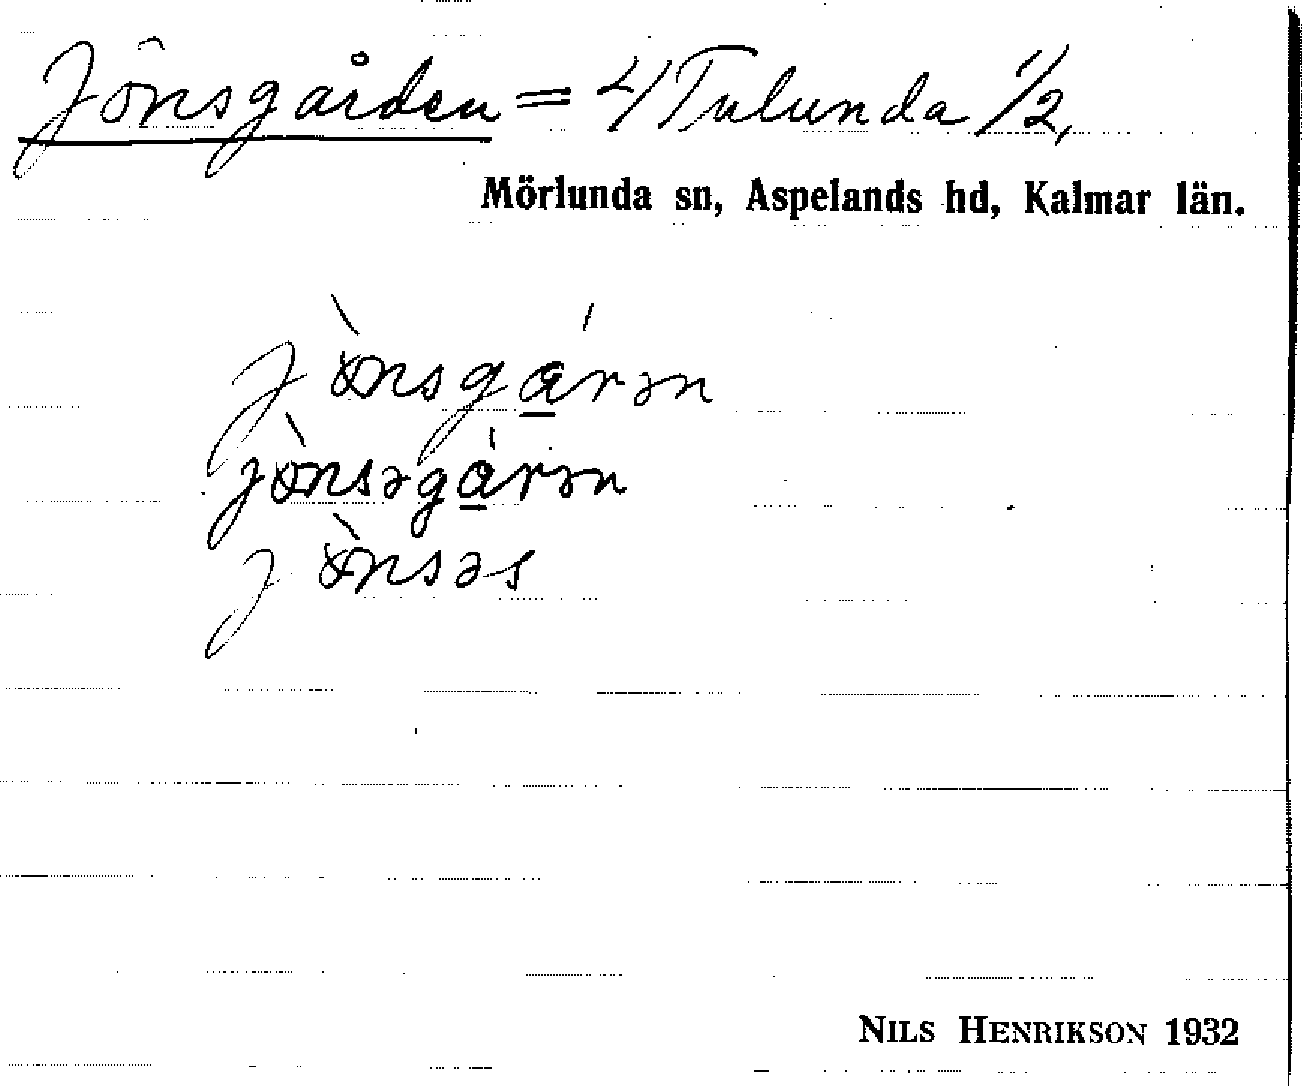 Jönsgården = 4/ Tulunda 1/2,
Mörlunda sn, Aspelands hd, Kalmar län.
jònsgárən
jònsəgárən
jònsəs
NILS HENRIKSON 1932